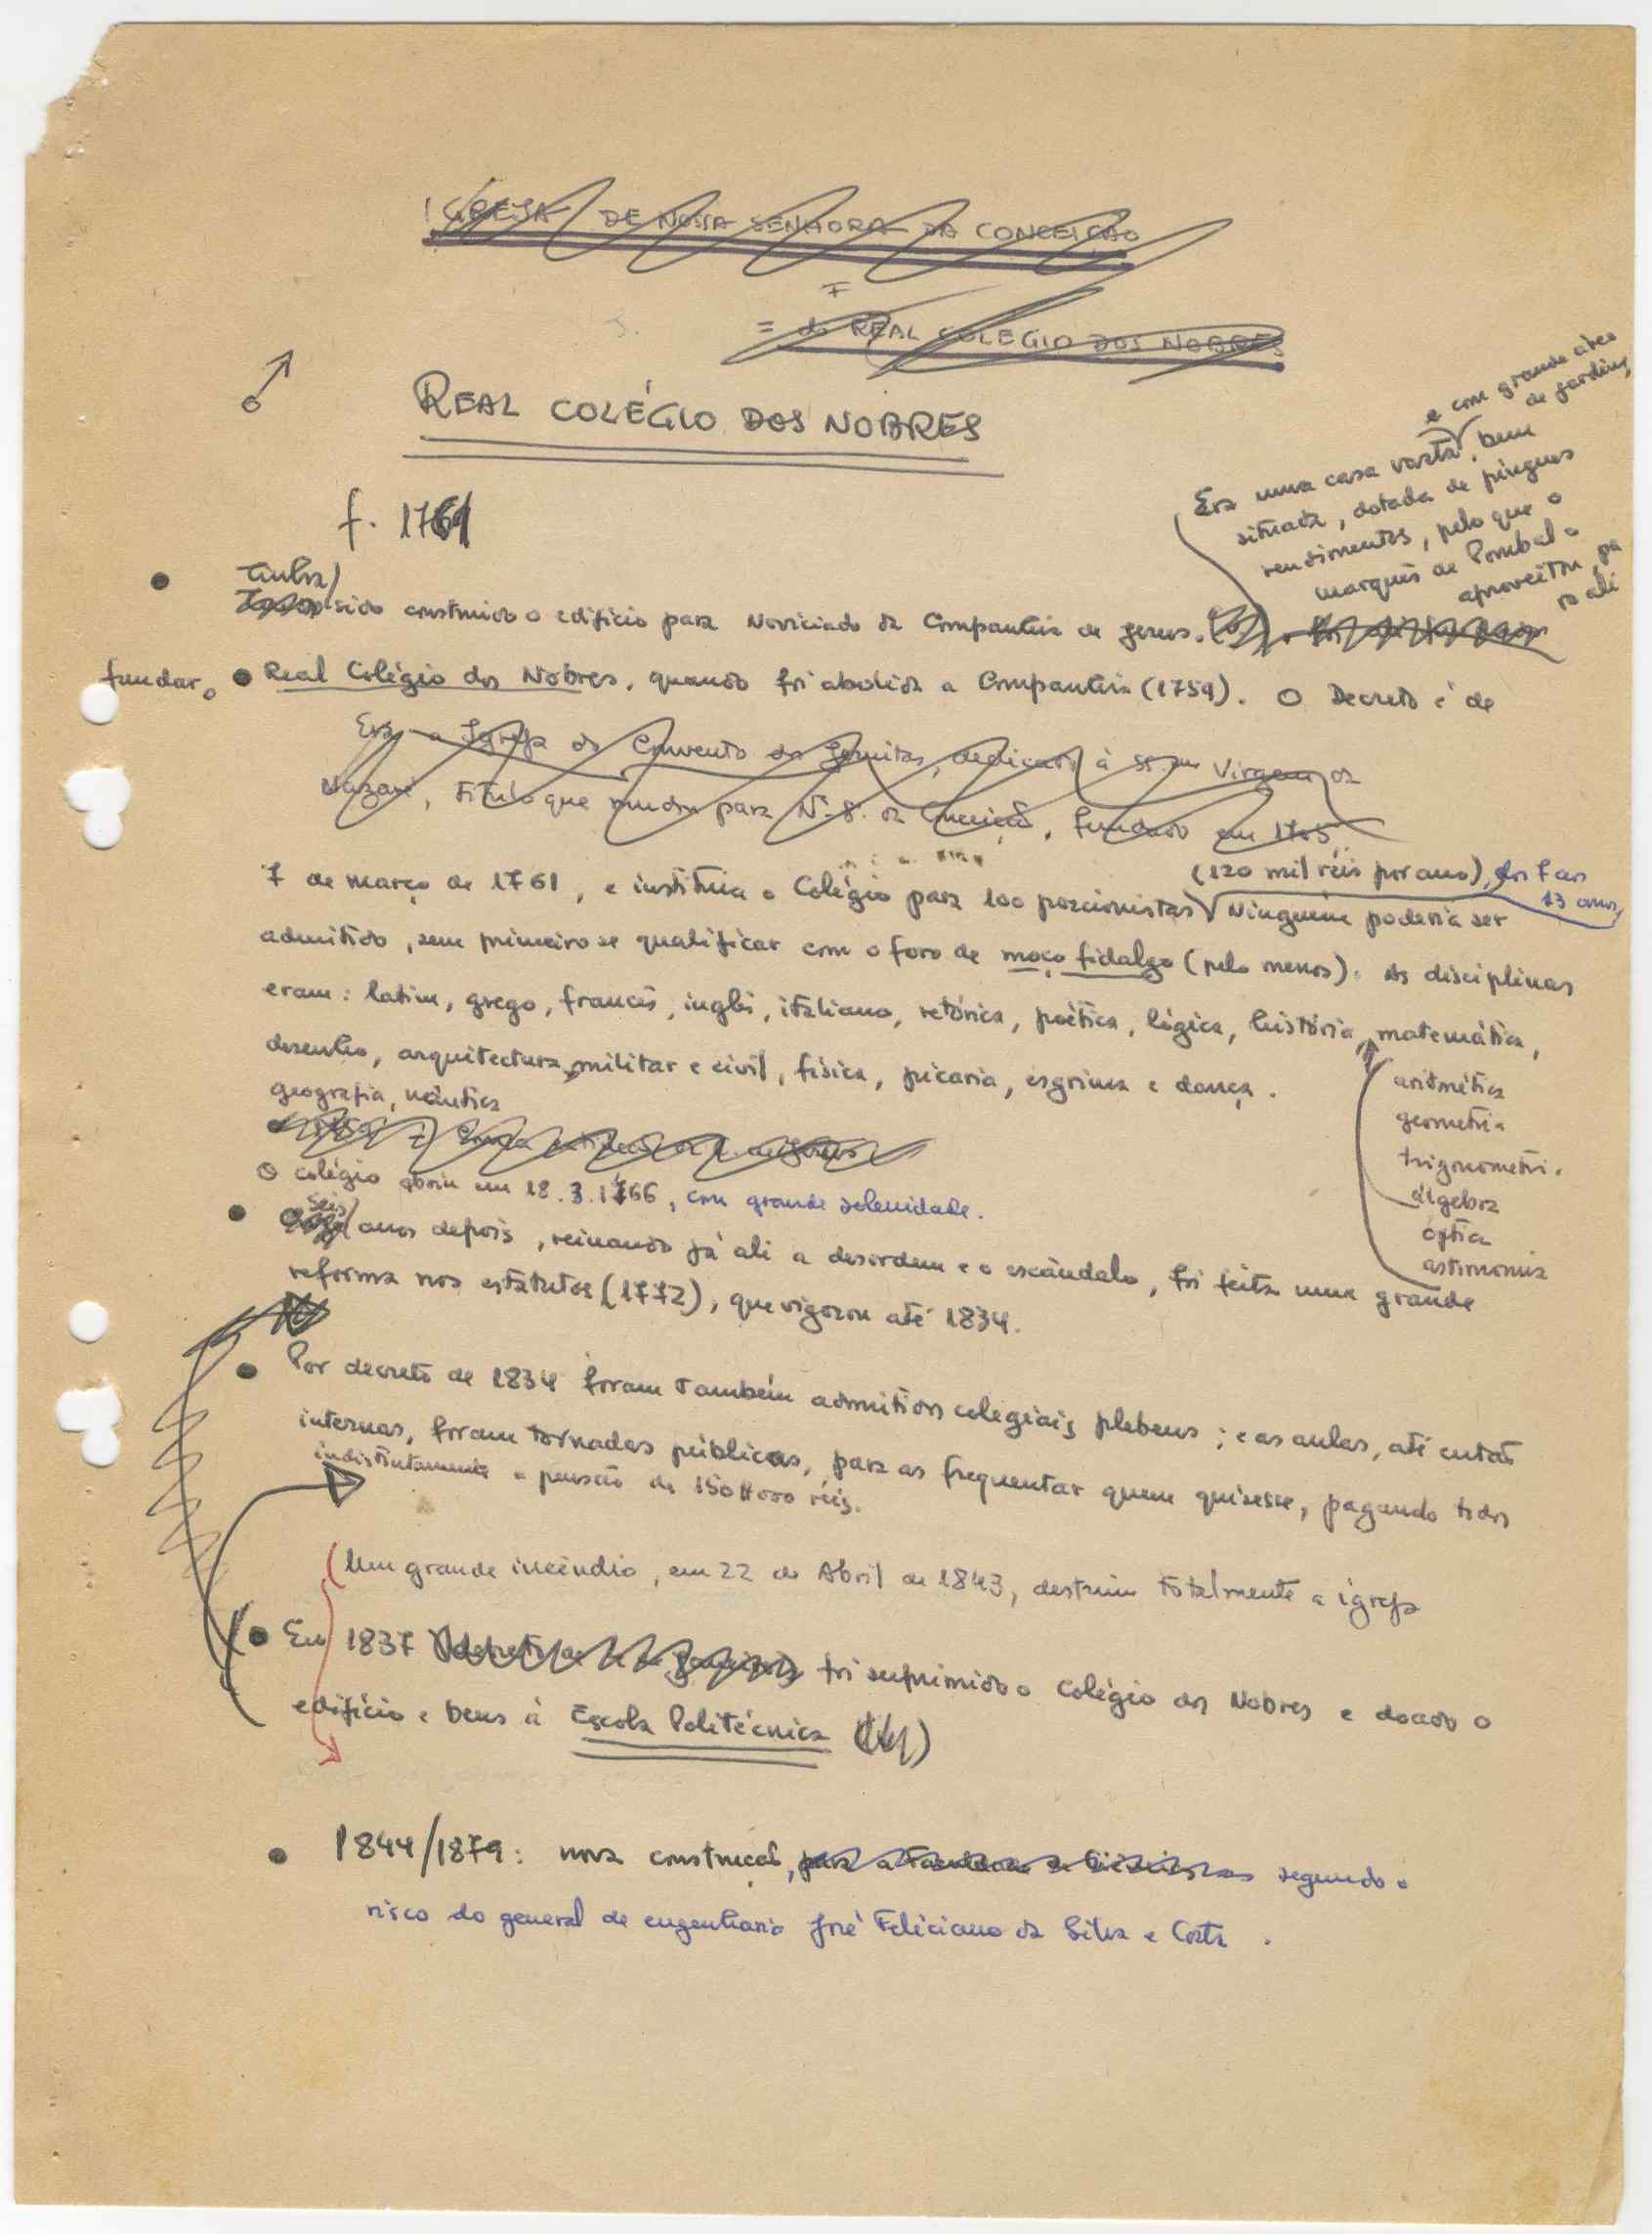 IGREJA DE NOSSA SENHORA DA CONCEIÇÃO
= do REAL COLEGIO DOS NOBRES
REAL COLÉGIO DOS NOBRES
f. 1761
e com grande área
de jardins,
Era uma casa vasta, bem
situada, dotada de pingues
rendimentos, pelo que o
marquês de Pombal a
aproveitou pa
ra ali
Tinha
sido construido o edifício para Noviciado da Companhia de Jesus.
fundar o Real Colégio dos Nobres, quando foi abolida a Companhia (1759). O Decreto é de
Era a Igreja do Convento dos Jesuitas, dedicado à SS.ma Virgem da
Nazaré, título que mudou para N. S. da Conceição, fundado em 1705
(120 mil réis por ano), dos 7 aos
13 anos,
7 de março de 1761, e instituia o Colégio para 100 porcionistas Ninguém poderia ser
admitido, sem primeiro se qualificar com o foro de moço fidalgo (pelo menos). As disciplinas
eram: latim, grego, francês, inglês, italiano, retórica, poética, lógica, história, matemática,
desenho, arquitectura militar e civil, física, picaria, esgrima e dança.
geografia, náutica
aritmética
geometria
trigonometri.
álgebra
óptica
astronomia
O colégio abriu em 18.3.1766, com grande solenidade.
Seis
anos depois, reinando já ali a desordem e o escândalo, foi feita uma grande
reforma nos estatutos (1772), que vigorou até 1834.
Por decreto de 1834 foram também admitidos colegiais plebeus; e as aulas, até então
internas, foram tornadas públicas, para as frequentar quem quisesse, pagando todos
indistintamente a pensão de 150#000 réis.
(Um grande incêndio, em 22 de Abril de 1843, destruiu totalmente a igreja
Em 1837 foi suprimido o Colégio dos Nobres e doado o
edifício e bens à Escola Politécnica
1844/1879: nova construção, para a Faculdade de Ciências segundo o
risco do general de engenharia José Feliciano da Silva e Costa.